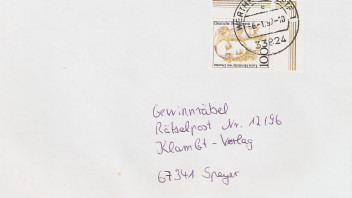 33824
100
Gewinnrätsel
Rätselpost Nr. 12/96
Klambt-Verlag
67341 Speyer